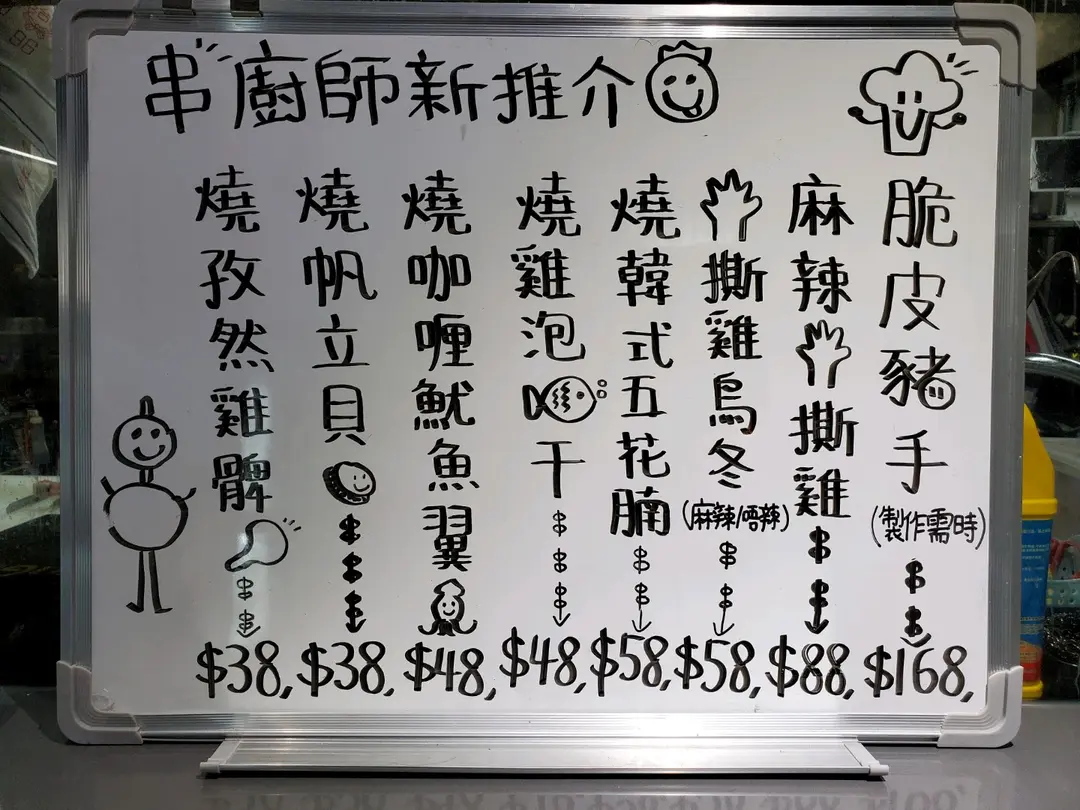 串廚師新推介
脆皮豬手
(製作需時)
$168,
麻辣撕雞
$88,
撕雞烏冬
(麻辣/唔辣)
$58,
燒韓式五花腩
$58,
燒雞泡干
$48,
燒咖喱魷魚翼
$48,
燒帆立貝
$38,
燒孜然雞髀
$38,